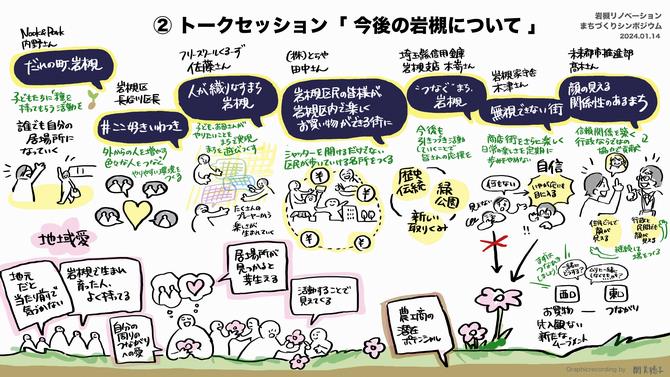 ② トークセッション「 今後の岩槻について 」
岩槻リノベーション
まちづくりシンポジウム
2024.01.14
Nook&Park
内野さん
だれの町、岩槻
子どもたちに「種」を
持ってもらう活動を
誰でも自分の
居場所に
なっていく
岩槻区
長谷川区長
#ここ好きいわつき
外からの人を増やす
色々な人をつなぐ
やりやすい環境を
つくる
フリースクールくるーデ
佐藤さん
人が織りなすまち
岩槻
子ども、お母さんが
やりたいことを
まちで実現
まちを遊びつくす
たくさんの
プレイヤーから
楽しさが
生まれていく
(株)とらや
田中さん
岩槻区民の皆様が
岩槻区内で楽しく
お買い物ができる街に
シャッターを開けるだけでない
区民が歩いていける場所をつくる
埼玉縣信用金庫
岩槻支店 本嵜さん
"つなぐ"まち、
岩槻
今後も
引きつぎ活動
していくことで
皆さんの応援を
歴史
伝統
緑
公園
新しい
取りくみ
岩槻家守舎
木津さん
無視できない街
商店街をさらに楽しく
日常の楽しさを定期的に
歩みをやめない
何もない
見ない
自信
いやが応にも
目に入る
未来都市推進部
高木さん
顔の見える
関係性のあるまち
信頼関係を築く
行政ならではの
協力で貢献
行政と
民間も
顔が
見える
継続して
場をつくる
まずは
つなぎを
しましょう
西口
東口
お買物
つながり
仕入観ない
新たな
ムーブメント
地域愛
地元
だと
当たり前で
気づかない
岩槻で生まれ
育った人、
よく持ってる
自分の
周りの
つながり
への愛
居場所が
見つかると
芽生える
活動することで
見えてくる
農工商の
潜在
ポテンシャル
Graphicrecording by